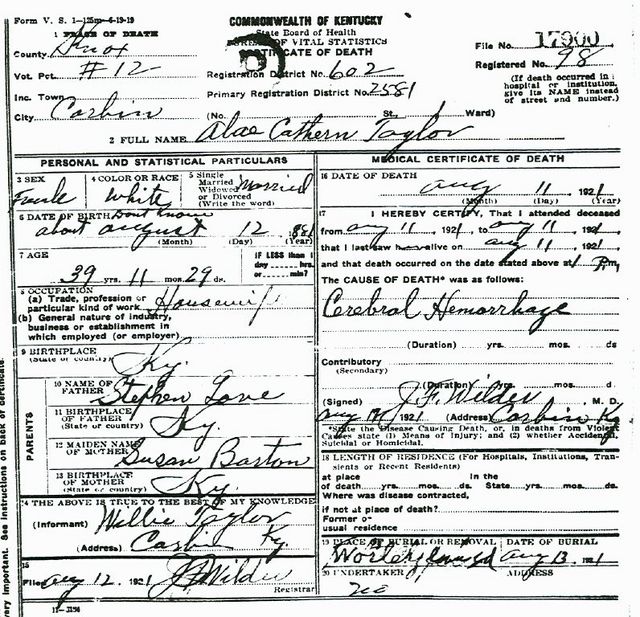 Form V. S. 1-125m-6-19-19
COMMONWEALTH OF KENTUCKY
State Board of Health
BUREAU OF VITAL STATISTICS
CERTIFICATE OF DEATH
File No. 17900
Registered No. 98
(If death occurred in a hospital or institution, give its NAME instead of street and number.)
1 PLACE OF DEATH
County Knox
Vot. Pct. #12
Inc. Town
City Corbin
Registration District No. 602
Primary Registration District No. 2581
(No. St., Ward)
2 FULL NAME Alae Cathern Taylor
PERSONAL AND STATISTICAL PARTICULARS
3 SEX Female
4 COLOR OR RACE White
5 Single Married Widowed or Divorced (Write the word) Married
6 DATE OF BIRTH Dont Know
about August 12 1881
(Month) (Day) (Year)
7 AGE
39 yrs. 11 mos. 29 ds.
IF LESS than 1 day hrs. or min?
8 OCCUPATION
(a) Trade, profession or particular kind of work Housewife
(b) General nature of industry, business or establishment in which employed (or employer)
9 BIRTHPLACE (State or country) Ky.
PARENTS
10 NAME OF FATHER Stephen Love
11 BIRTHPLACE OF FATHER (State or country) Ky.
12 MAIDEN NAME OF MOTHER Susan Barton
13 BIRTHPLACE OF MOTHER (State or country) Ky.
14 THE ABOVE IS TRUE TO THE BEST OF MY KNOWLEDGE
(Informant) Willie Taylor
(Address) Corbin Ky.
15
Filed Aug 12, 1921 J F Wilder
Registrar
11-3184
MEDICAL CERTIFICATE OF DEATH
16 DATE OF DEATH
Aug 11, 1921
(Month) (Day) (Year)
17 I HEREBY CERTIFY, That I attended deceased
from Aug 11, 1921 to Aug 11, 1921
that I last saw her alive on Aug 11, 1921
and that death occurred on the date stated above at 1 P.m.
The CAUSE OF DEATH* was as follows:
Cerebral Hemorrhage
(Duration) yrs. mos. ds
Contributory
(Secondary)
(Duration) yrs. mos. d
(Signed) J. F. Wilder M. D.
Aug 1921 (Address) Corbin Ky
*State the Disease Causing Death, or, in deaths from Violent Causes state (1) Means of Injury; and (2) whether Accidental, Suicidal or Homicidal.
18 LENGTH OF RESIDENCE (For Hospitals, Institutions, Transients or Recent Residents)
At place of death yrs. mos. ds. In the State yrs. mos. ds
Where was disease contracted,
if not at place of death?
Former or usual residence
19 PLACE OF BURIAL OR REMOVAL
DATE OF BURIAL
Aug 13, 1921
20 UNDERTAKER
ADDRESS
very important. See instructions on back of certificate.